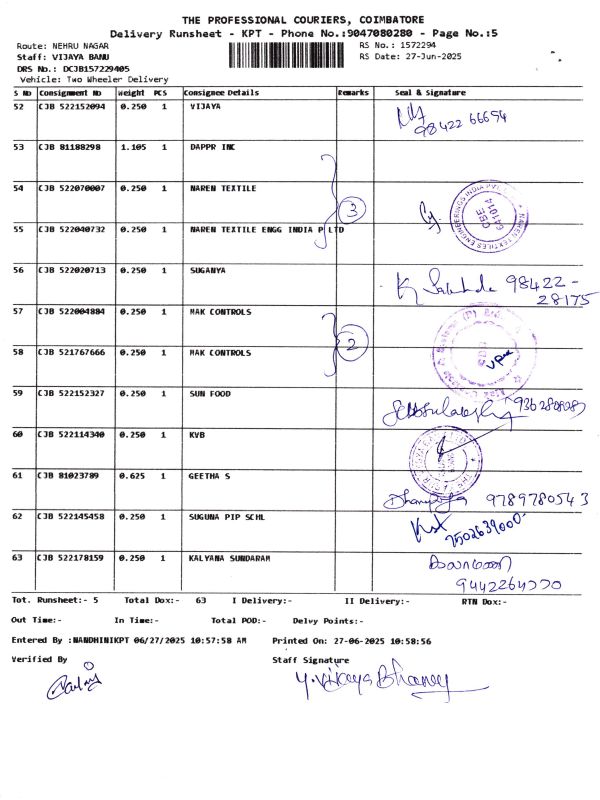 THE PROFESSIONAL COURIERS, COIMBATORE
Delivery Runsheet - KPT - Phone No.:9047080280 - Page No.:5
Route: NEHRU NAGAR RS No.: 1572294
Staff: VIJAYA BANU RS Date: 27-Jun-2025
DRS No.: DCJB157229405
Vehicle: Two Wheeler Delivery
S No Consignment No Weight PCS Consignee Details Remarks Seal & Signature
52 CJB 522152094 0.250 1 VIJAYA
98422 66694
53 CJB 81188298 1.105 1 DAPPR INC
54 CJB 522070007 0.250 1 NAREN TEXTILE
3
55 CJB 522040732 0.250 1 NAREN TEXTILE ENGG INDIA P LTD
NAREN TEXTILES ENGINEERINGS INDIA PVT
CBE
641014
56 CJB 522020713 0.250 1 SUGANYA
98422-
28175
57 CJB 522004884 0.250 1 MAK CONTROLS
2
58 CJB 521767666 0.250 1 MAK CONTROLS
59 CJB 522152327 0.250 1 SUN FOOD
60 CJB 522114340 0.250 1 KVB
61 CJB 81023789 0.625 1 GEETHA S
9789780543
62 CJB 522145458 0.250 1 SUGUNA PIP SCHL
7502639000
63 CJB 522178159 0.250 1 KALYANA SUNDARAM
Tot. Runsheet:- 5 Total Dox:- 63 I Delivery:- II Delivery:- RTN Dox:-
Out Time:- In Time:- Total POD:- Delvy Points:-
Entered By :NANDHINIKPT 06/27/2025 10:57:58 AM Printed On: 27-06-2025 10:58:56
Verified By Staff Signature
Y. Vijaya Bhaney